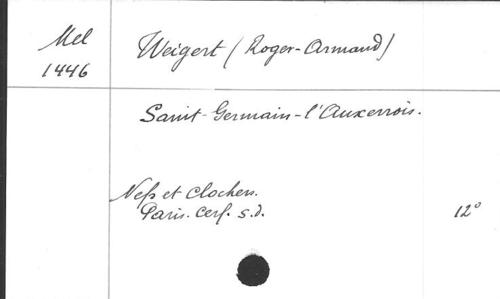 Mel
1446
Weigert (Roger-Armand)
Saint-Germain-l'Auxerrois.
Nefs et Clochers.
Paris. Cerf. s.d.
12°